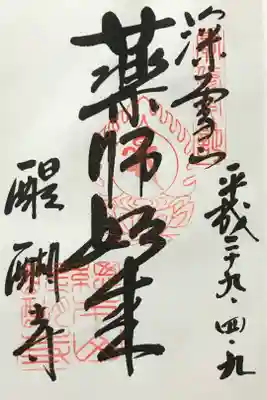 深雪山
平成二十九、四、九
薬師如来
醍醐寺